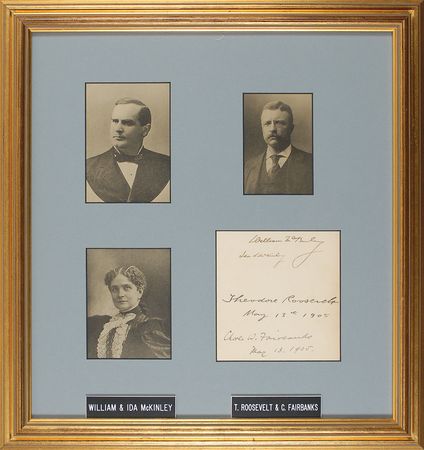 William McKinley
Ida McKinley
Theodore Roosevelt
May 13th 1905
Chas. W. Fairbanks
May 13, 1905.
WILLIAM & IDA McKINLEY
T. ROOSEVELT & C. FAIRBANKS